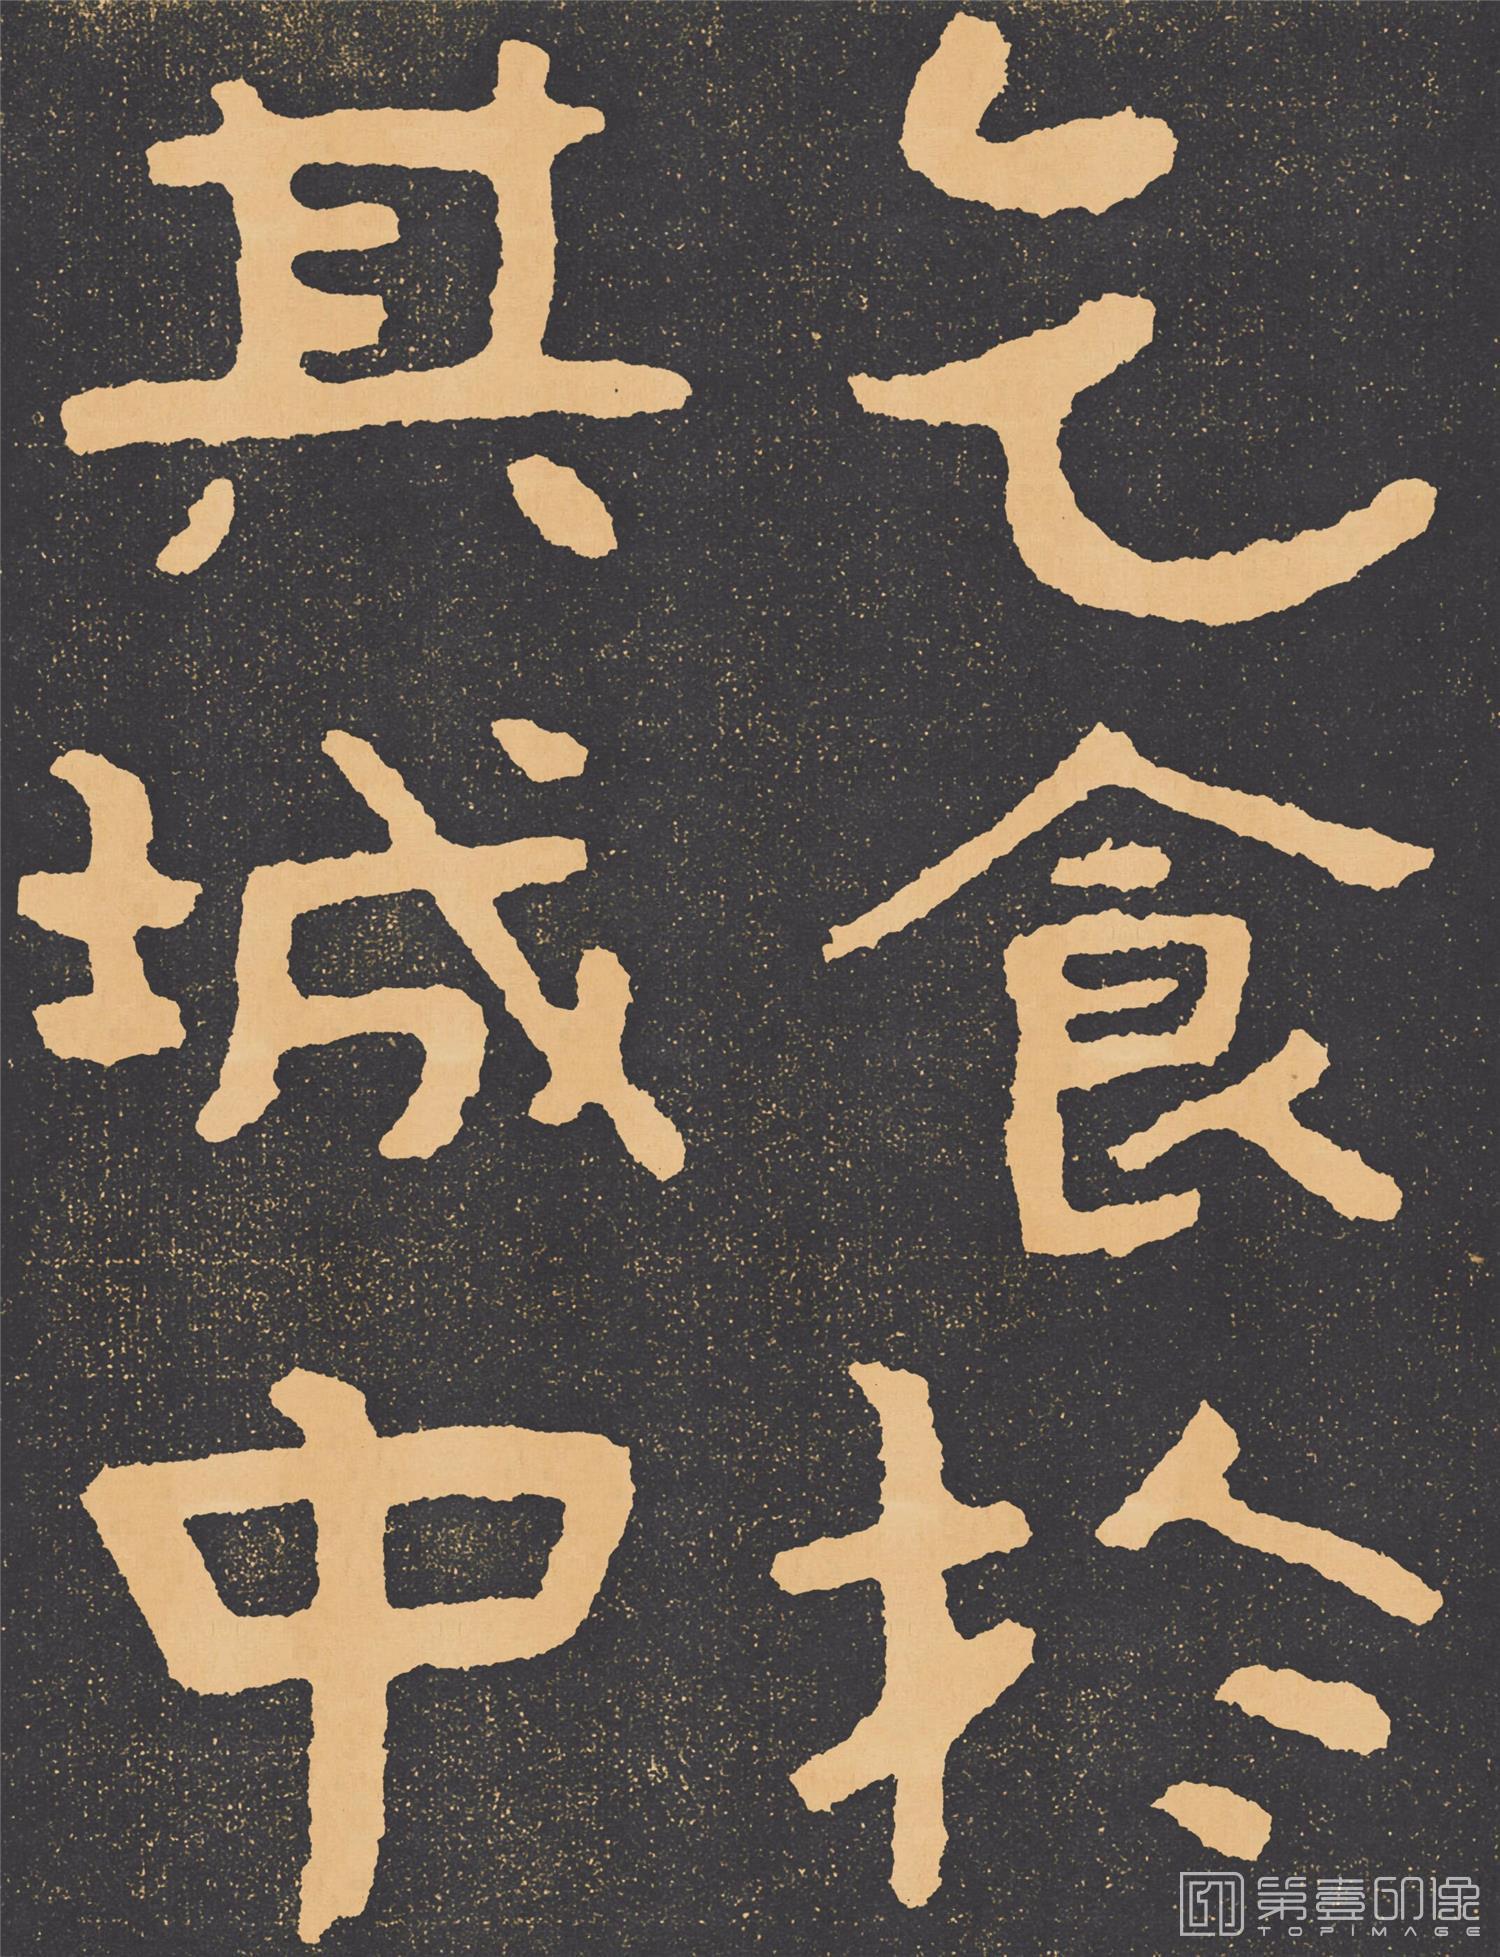 乞食扵
其城中
第壹印像
TOPIMAGE